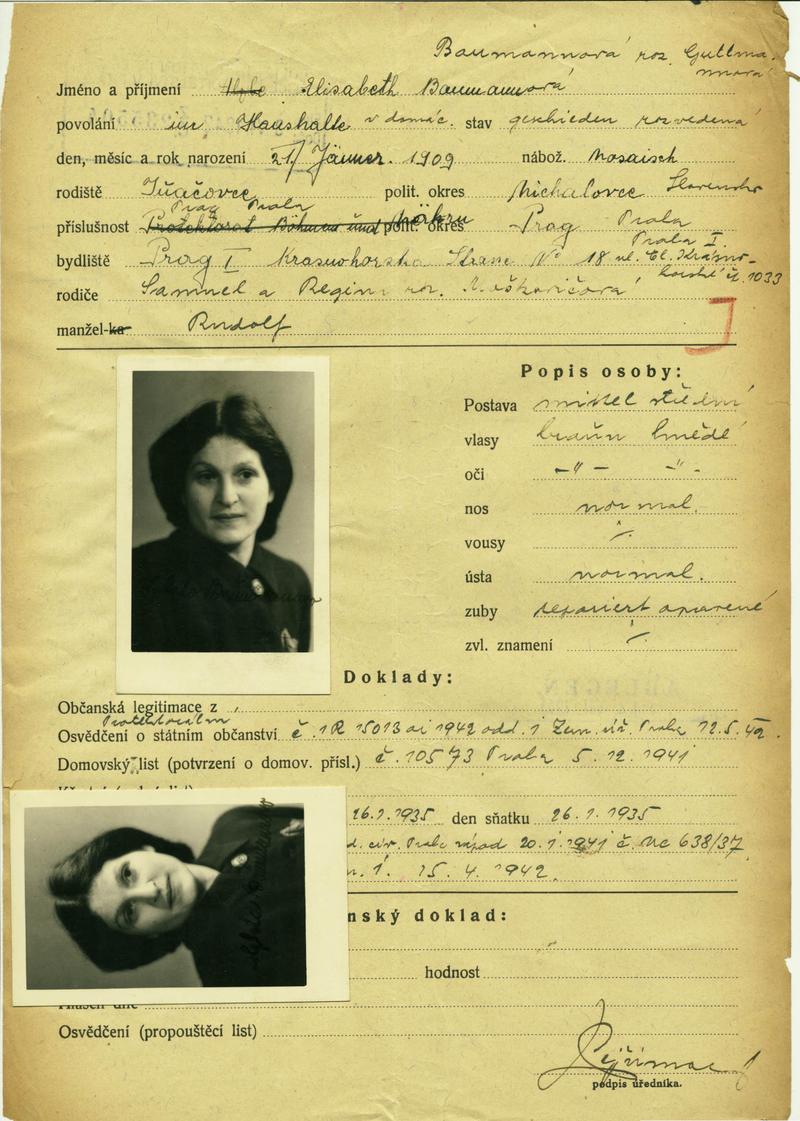 Baumannová roz. Guttma-
nnová
Jméno a příjmení Elisabeth Baumannová
povolání im Haushalte v domác. stav geschieden rozvedená
den, měsíc a rok narození 21/ Jänner. 1909 nábož. mosaisch
rodiště Iňačovce polit. okres Michalovce Slovensko
Prag Praha
příslušnost Protektorat Böhmen und Mähren polit. okres Prag Praha
Praha I.
bydliště Prag I Krasnohorska Strasse No 18 ul. El. Krásno-
horské č. 1033
rodiče Samuel a Regina roz.
manžel-ka Rudolf
Popis osoby:
Postava mittel střední
vlasy braun hnědé
oči -"- -"-
nos normal.
vousy
ústa normal.
zuby repariert opravené
zvl. znamení
Doklady:
Občanská legitimace z
Protektorátní
Osvědčení o státním občanství č. 1R 15013 ai 1942 odd. 1 Zem. úř. Praha 12.5.42.
Domovský list (potvrzení o domov. přísl.) č. 10573 Praha 5. 12. 1941
26.1.1935 den sňatku 26. 1. 1935
d. civ. Praha západ 20. 1. 1941 č. Nc 638/37
15. 4. 1942.
nský doklad:
hodnost
Osvědčení (propouštěcí list)
podpis úředníka.